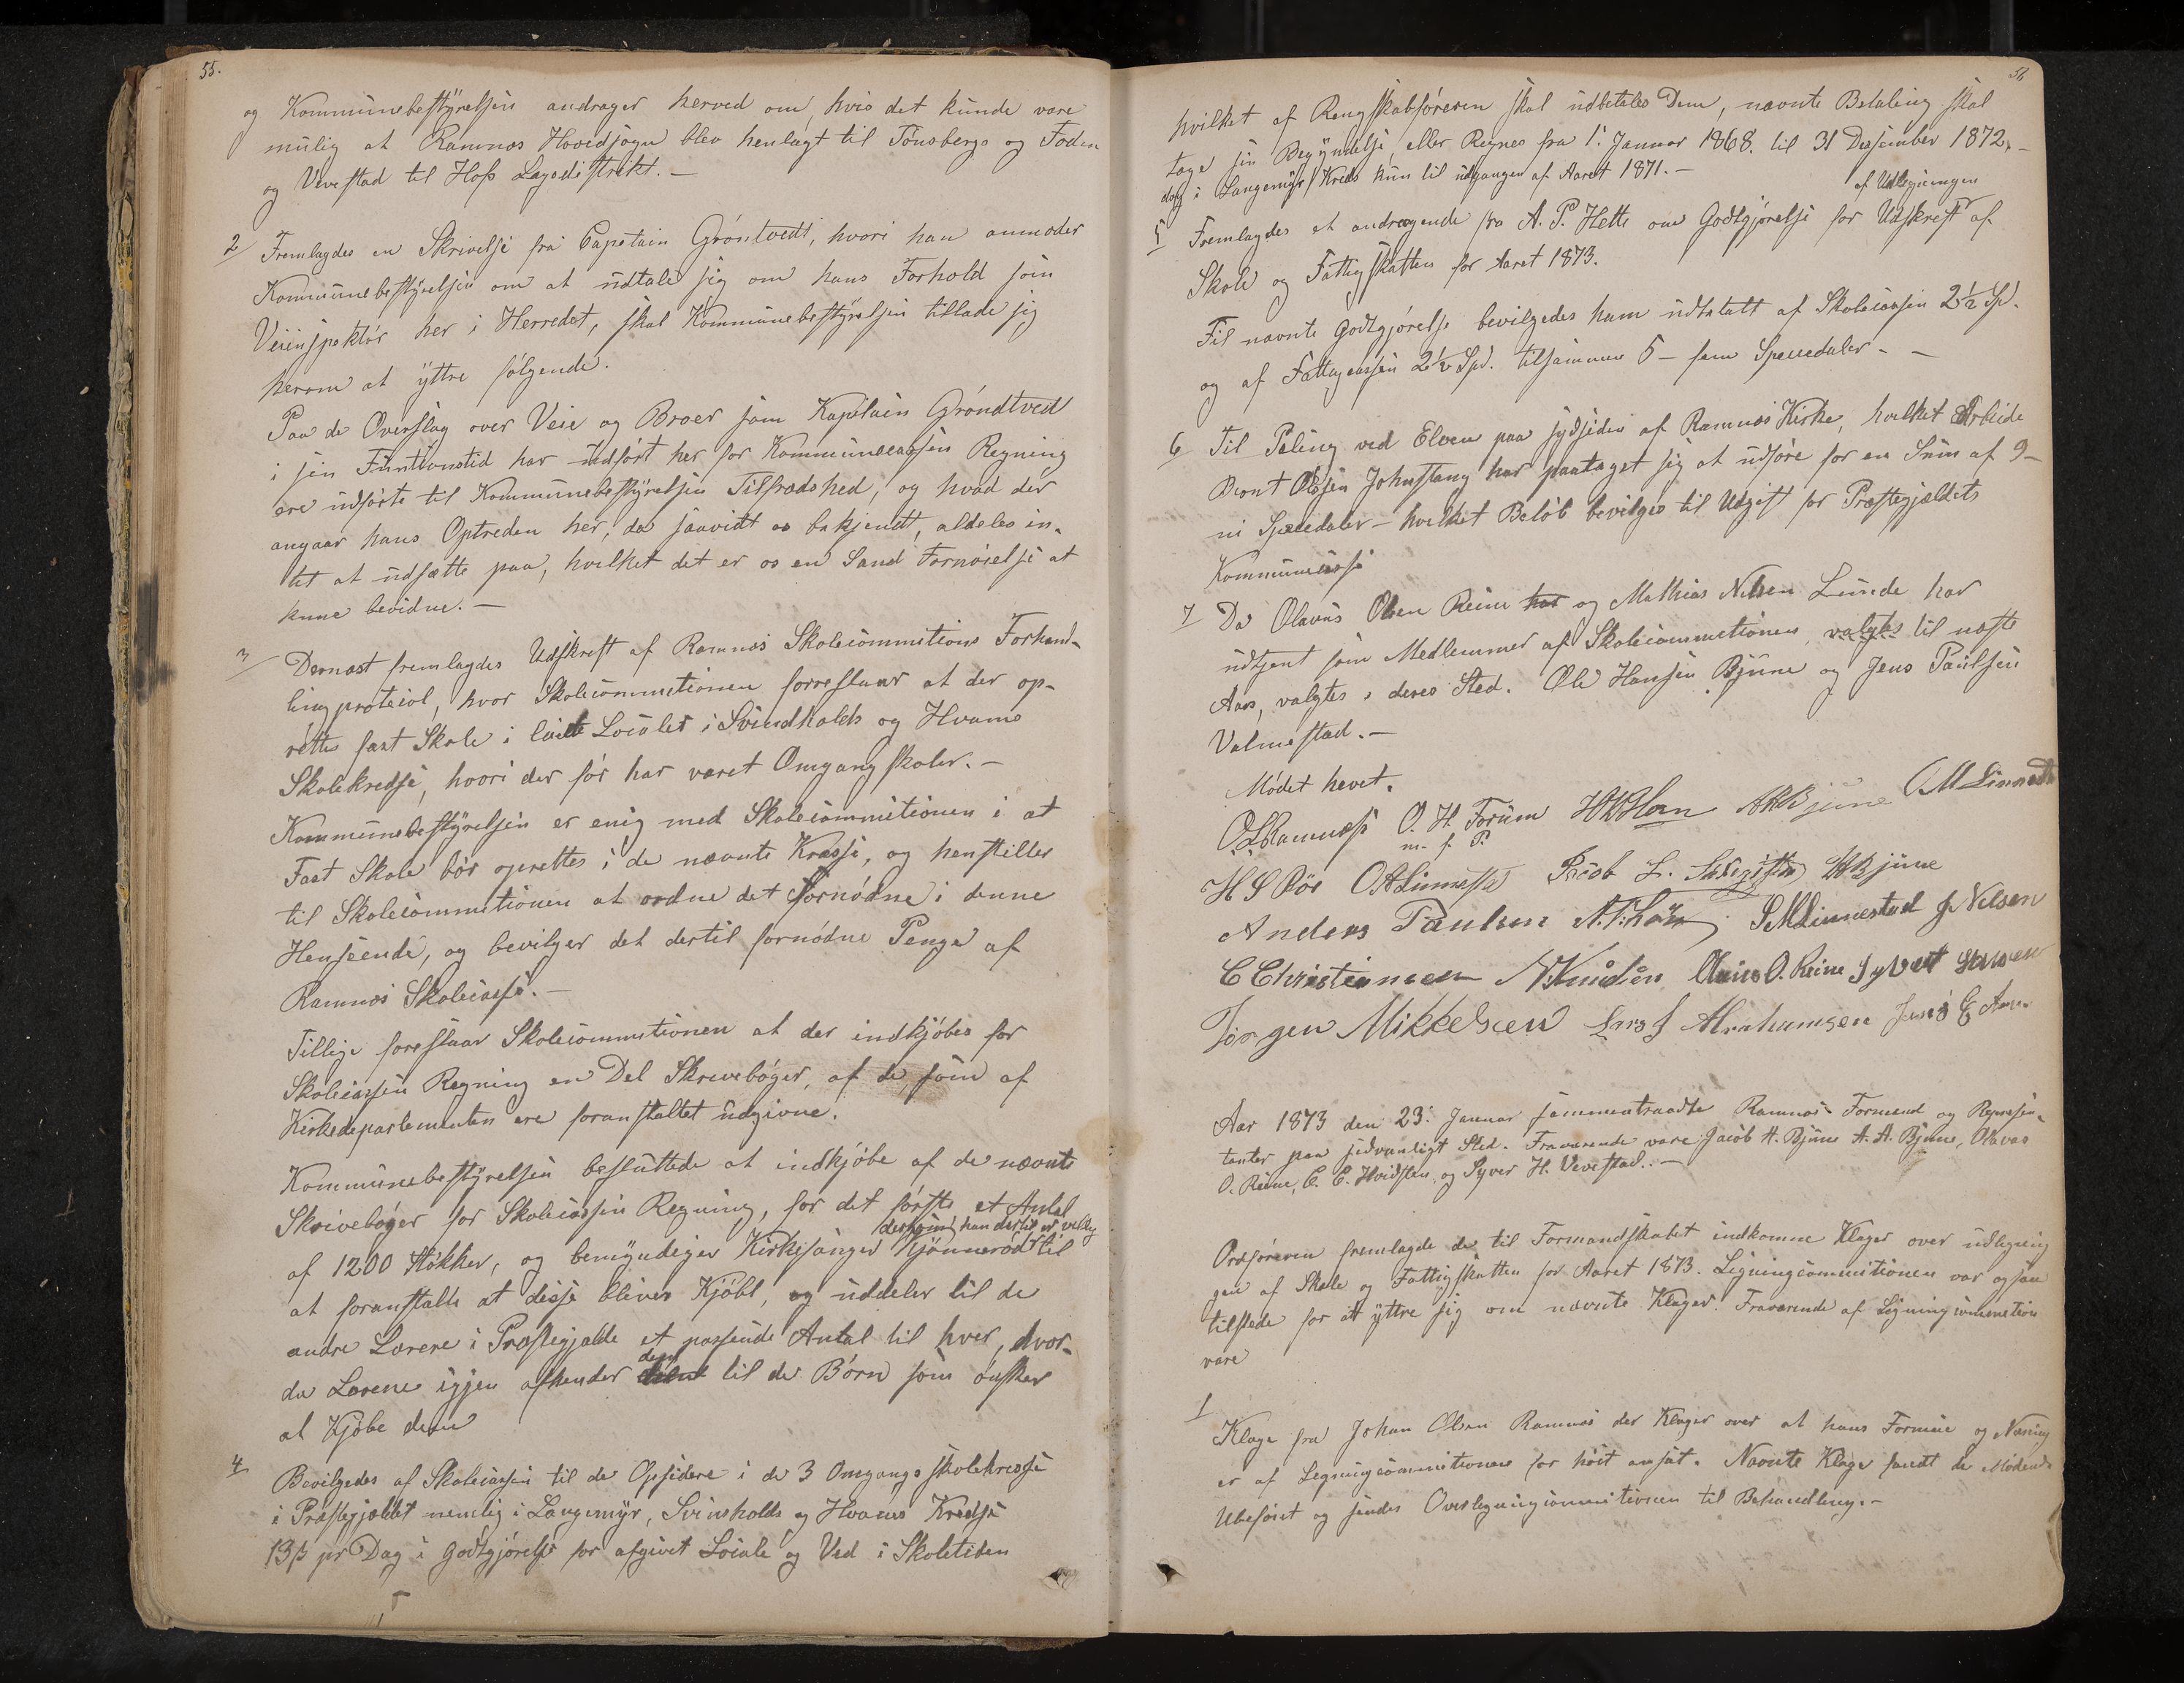 55.
og Kommunebestyrelsen andrager herved om, hvis det kunde være
mulig at Ramnæs Hovedsogn blev henlagt til Tönsbergs og Foden
og Vivestad til Hofs Lagsdistrikt. —
2/ Fremlagdes en Skrivelse fra Capetain Gröntvedt, hvori han anmoder
Kommunebestyrelsen om at udtale sig om hans Forhold som
Veiinspektör her i Herredet, skal Kommunebestyrelsen tillade sig
herom at yttre fölgende.
Paa de Overslag over Veie og Broer som Kapetain Gröndtved
i sin Funtionstid har udfört her for Kommunecassen Regning
ere udförte til Kommunebestyrelsen Tilfredshed, og hvad der
angaar hans Optreden her, da saavidt os bekjendt, aldeles in-
tet at udsætte paa, hvilket det er os en Sand Fornöielse at
kune bevidne. —
3/ Dernæst fremlagdes Udskreft af Ramnæs Skolecommitions Forhand-
lingprotecol, hvor Skolecommitionen forreslaar at der op-
rettes fast Skole i leiede Localer i Svindholds og Hvams
Skolekredse, hvori der för har været Omgangskoler. —
Kommunebestyrelsen er enig med Skolecommitionen i at
Fast Skole bör oprettes i de nævnte Kredse, og henstiller
til Skolecommitionen at ordne det fornödne i denne
Henseende, og bevilger det dertil fornödne Penge af
Ramnæs Skolecasse. —
Tillige foreslaar Skolecommitionen at der indkjöbes for
Skolecassen Regning en Del Skriveböger, af de, som af
Kirkedepartementen ere foranstaltet udgivne.
Kommunebestyrelsen besluttede at indkjöbe af de nævnte
Skriveböger for Skolecassen Regning, for det förste et Antal
dersom han dertil er villig
af 1200 Stökker, og bemyndiger Kirkesanger Kjönneröd til
at foranstalte at disse bliver Kjöbt, og uddeler til de
andre Lærere i Præstegjælde et passende Antal til hver, hvor-
dem
da Lærene igjen afhender til de Börn som önsker
at Kjöbe dem
4/ Bevilgedes af Skolecassen til de Opsidere i de 3 Omgangsskolekredse
i Præstegjældet nemlig i Langemyr, Svinsholds og Hvams Kredse
13 ß pr Dag i godtgjörelse for afgivet Locale og Ved i Skoletiden
56
hvilket af Rengskabsföreren skal udbetales Dem, nævnte Betaling skal
tage sin Begyndelse eller Regnes fra 1: Januar 1868. til 31 Desember 1872, —
dog i Langemyr Kreds kun til udgangen af Aaret 1871. —
af Udlegningen
5/ Fremlagdes et andragende fra A. P. Hette om Godtgjörelse for Udskreft af
Skole og Fattigskatten for Aaret 1873.
Til nævnte godtgjörelse bevilgedes ham udtatalt af Skolecassen 2½ Spd.
og af Fattigcassen 2½ Spd. tilsammen 5 — fem Speciedaler. —
6/ Til Peling ved Elven paa sydsiden af Ramnæs Kirke, hvilket Arbeide
Bernt Olesen Johnstang har paataget sig at udföre for en Sum af 9 —
ni Speciedaler — hvilket Belöb bevilges til Udgift for Præstegjældets
Kommunecasse
7/ Da Olavus Olsen Reine har og Mathias Nilsen Lunde har
udtjent som Medlemmer af Skolecommitionen, valgtes til næste
Aar, valgtes i deres Sted. Ole Hansen Bjune og Jens Paulsen
Valmestad. —
Mödet hævet.
O. L. Ramnæs O. H. Forum H K Horn A K Bjune C M Linnestad
m. f. P.
H S Röe O A Linnestad Jacob L. HBjune
Anders Paulsen S M Linnestad J. Nilsen
C Christiansen N Knudsen Olavus O. Reine Syvert Hansen
Jörgen Mikkelsen Lars J Abrahamsen Jens E
Aar 1873 den 23: Januar sammentraadte Ramnæs Formænd og Represen-
tanter paa sedvanligt Sted. Fraværende vare Jacob H. Bjune A. A. Bjune, Olavus
O. Reine, C. C. Hvidsten og Syver H. Vivestad. —
Ordföreren fremlagde de til Formandskabet indkomne Klager over udlegnin
gen af Skole og Fattigskatten for Aaret 1873. Ligningcommitionen var ogsaa
tilstede for at yttre sig om nævnte Klager. Fraværende af Ligningcommetion
vare
1/
Klage fra Johan Olsen Ramnæs der Klager over at hans Formue og Næring
er af Legningcommitionen for höit ansat. Nævnte Klage fandt de Mödende
Ubeföiet og sendes Overlegningcommitionen til Behandling. —